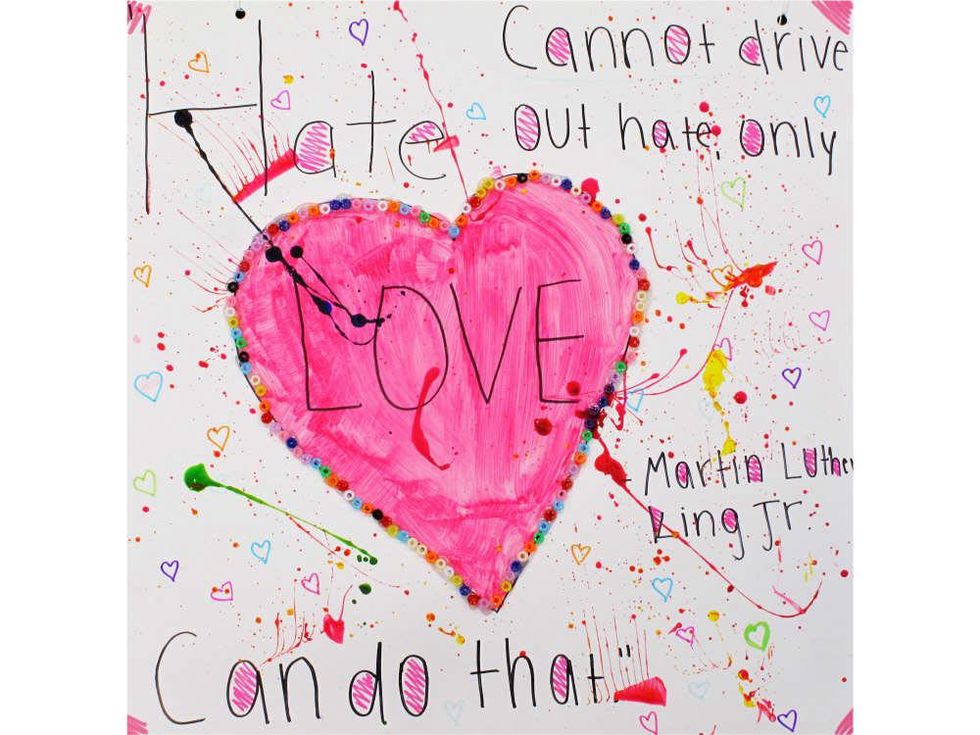 "Hate
Cannot drive
out hate, only
LOVE
- Martin Luther
King Jr.
Can do that."